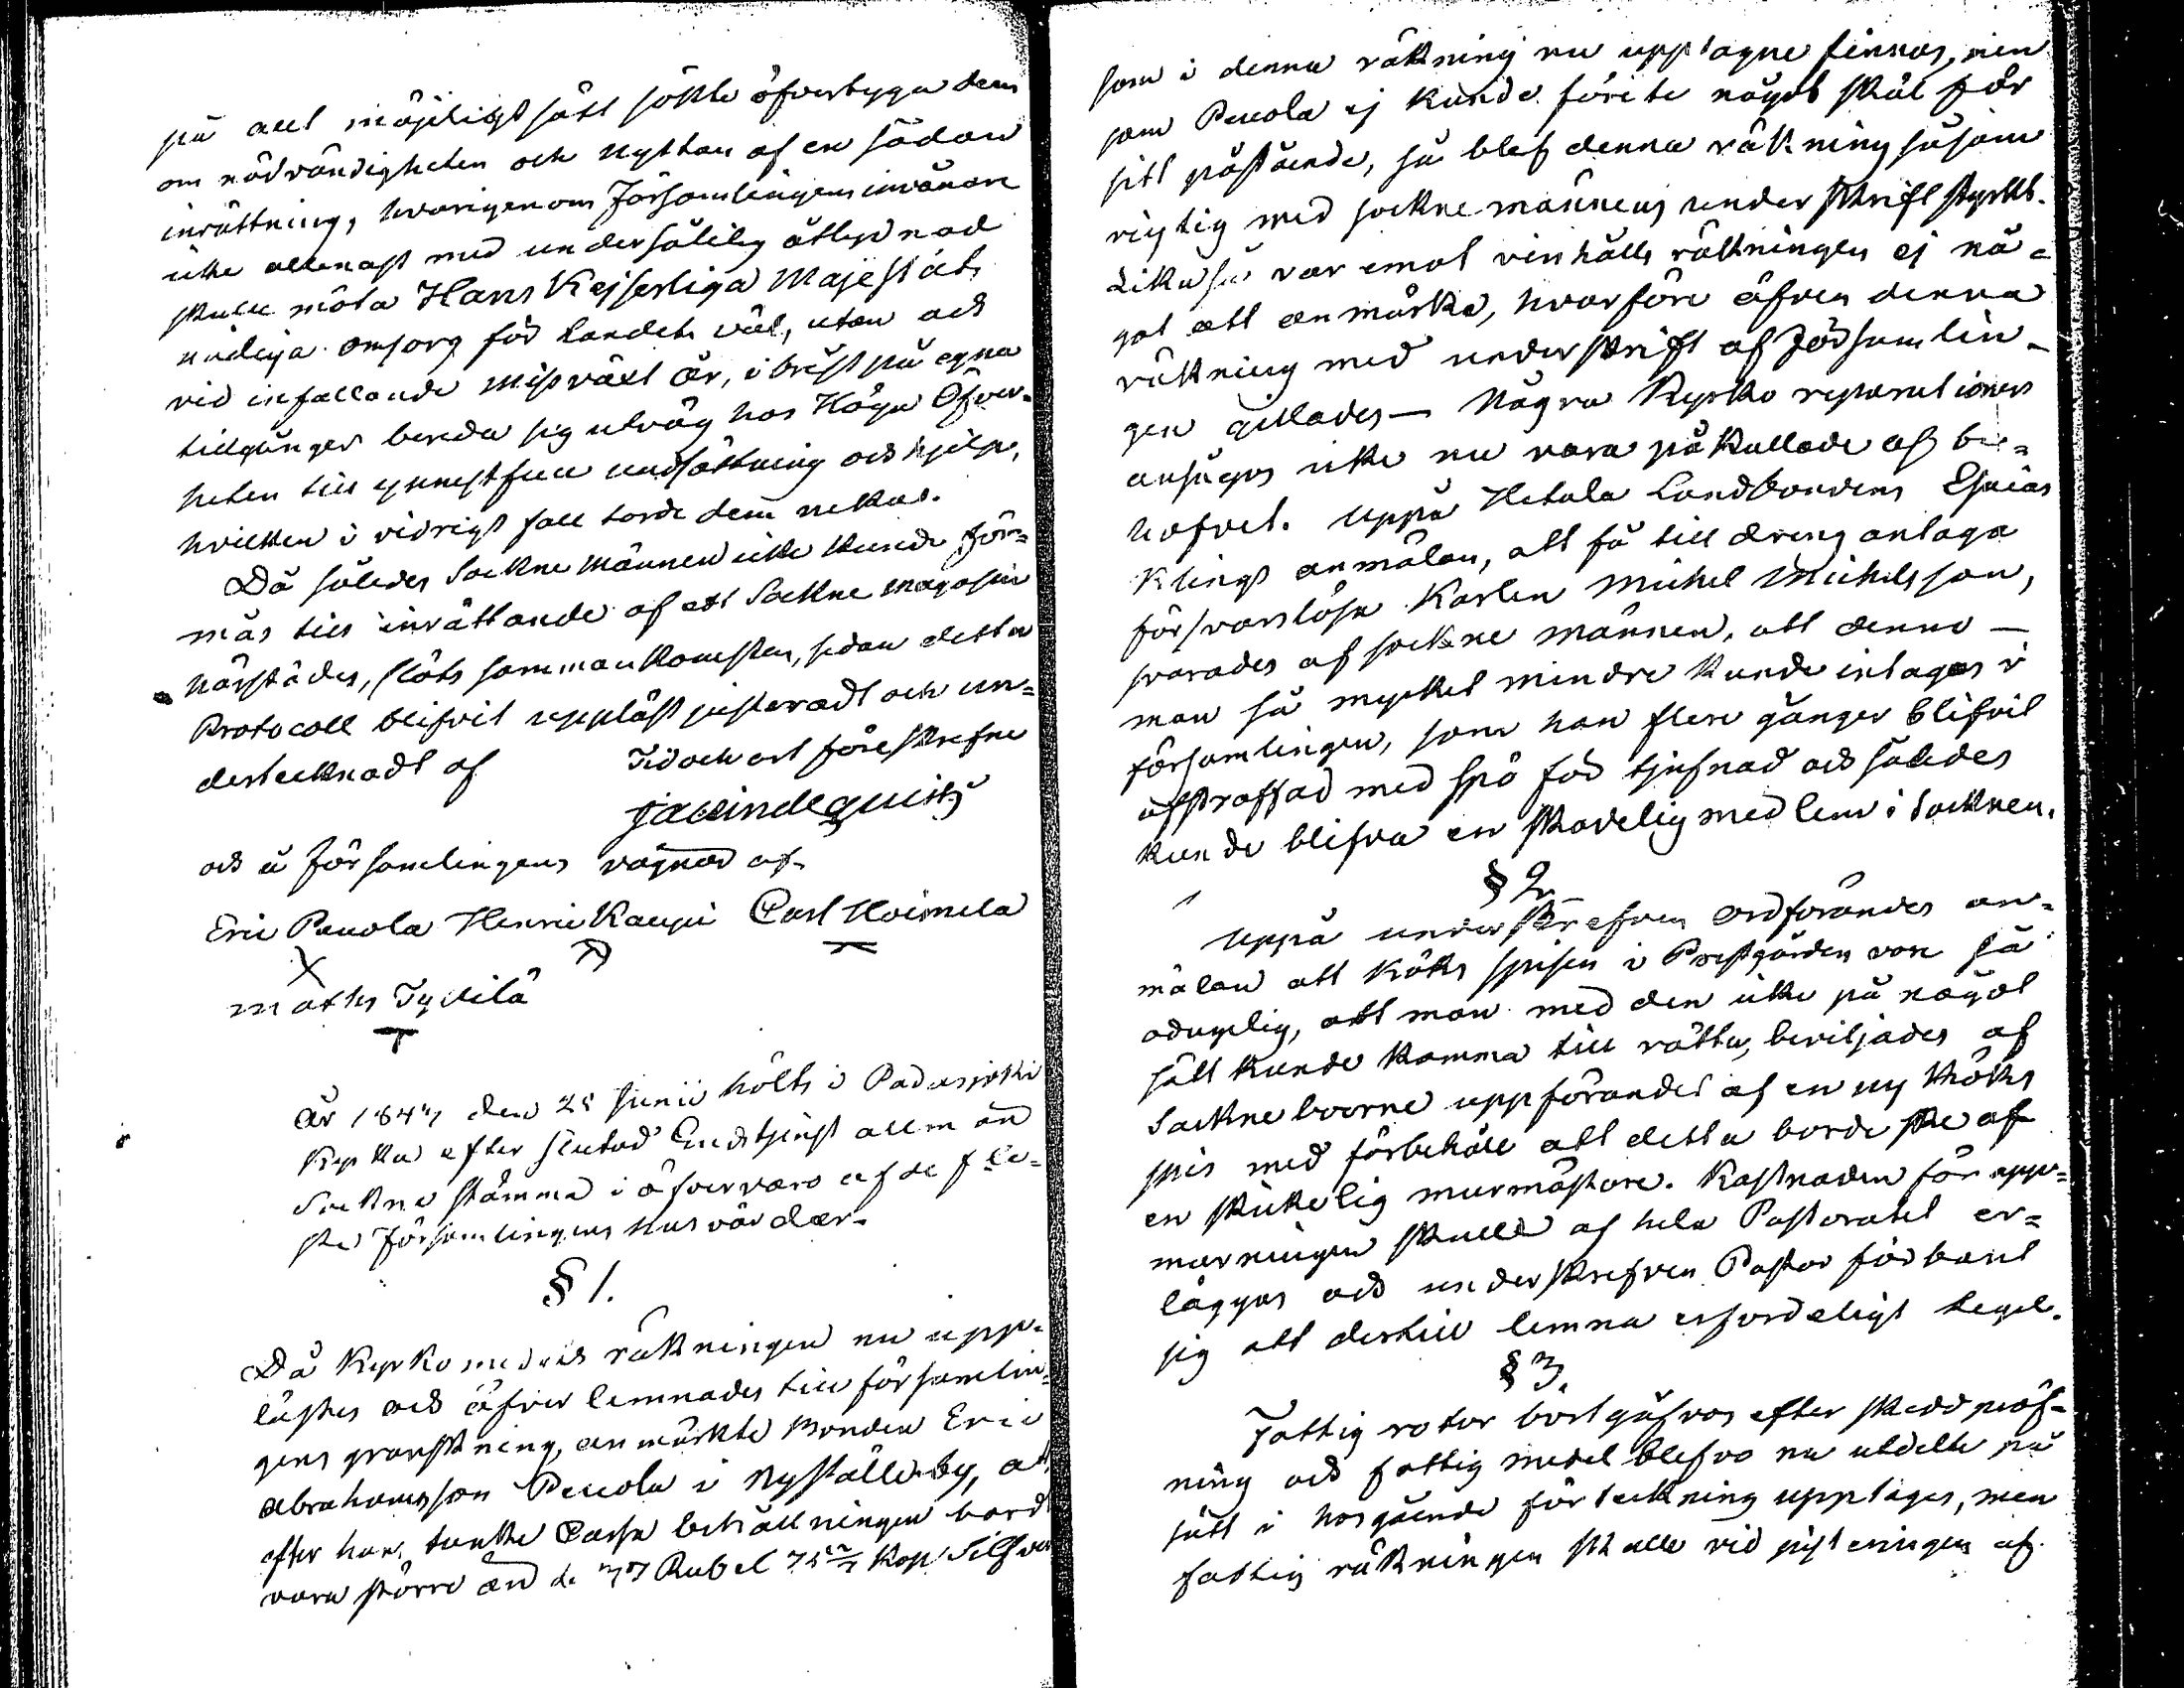 på allt möjeligt sätt sökte öfvertyga dem
om nödvändigheten och nyttan af en sådan
inrättning, hvarigenom Församlingens invånare
icke allenast med undersåtelig åtlydnad
skulle möta Hans Kejserliga Majestäts
nådiga omsorg för landets väl, utan ock
vid infallande missväxt år, i brist på egna
tillgångar bereda sig utväg hos Höga Öfver=
heten till gunstfull undsättning och hjelp,
hvilken i vidrigt fall torde dem nekas.
Då således Sockne Männen icke kunde för=
mås till inrättande af ett Sockne magasin
härstädes, slöts sammankomsten, sedan detta
Protocoll blifvit uppläst justeradt och un=
dertecknadt af Tid och ort föreskrefne
och å Församlingens vägnar af
Eric Peuola Henric Kaupi Carl Hoimela
Maths Tyvilä
År 1847 den 25 Junii hölts i Padasjoki
Kyrka efter slutad Gudstjenst allmän
Sockne stämma i öfvervaro af de fle=
sta Församlingens husvärdar.
§ 1.
Då Kyrkomedels räkningen nu upp=
lästes och öfver lemnades till församlin=
gens granskning, anmärkte Bonden Eric
Abrahamsson Peuola i Nyställe by, att
efter hans tanke Cassa behållningen bord
vara större än de 77 Rubel 75 2/7 Kop. Silfver
som i denna räkning nu upptagne finnas, men
som Peuola ej kunde förete något skäl för
sitt påstående, så blef denna räkning såsom
rigtig med sockne männens underskrift styrkt.
Likaså var emot vinhålls räkningen ej nå=
got att anmärka, hvarföre äfven denna
räkning med underskrift af Församlin-
gen gillades — Några Kyrko reparationer
ansågos icke nu vara påkallade af be=
hofvet. Uppå Hetola Landbondens Esaias
Klings anmälan, att få till dreng antaga
försvarslösa Karlen Michel Michelsson,
svarades af sockne männen, att denne —
man så mycket mindre kunde intagas i
församlingen, som han flere gånger blifvit
afstraffad med spö för tjufnad och således
kunde blifva en skadelig medlem i Socknen.
§ 2.
Uppå underskrefven Ordförandes an=
mälan att köks spisen i Prestgården vore så
oduglig, att man med den icke på något
sätt kunde komma till rätta, beviljades af
Socknebоerne uppförandet af en ny köks
spis med förbehåll att detta borde ske af
en skickelig murmästare. Kostnaden för upp=
murningen skulle af hela Pastoratet er=
läggas och underskrefven Pastor förbant
sig att dertill lemna erforderligt tegel.
§ 3.
Fattig rotor bortgåfvos efter skedd pröf=
ning och fattig medel blefvo nu utdelte på
sätt i hosgående förteckning upptages, men
fattig räkningen skulle vid justeringen af